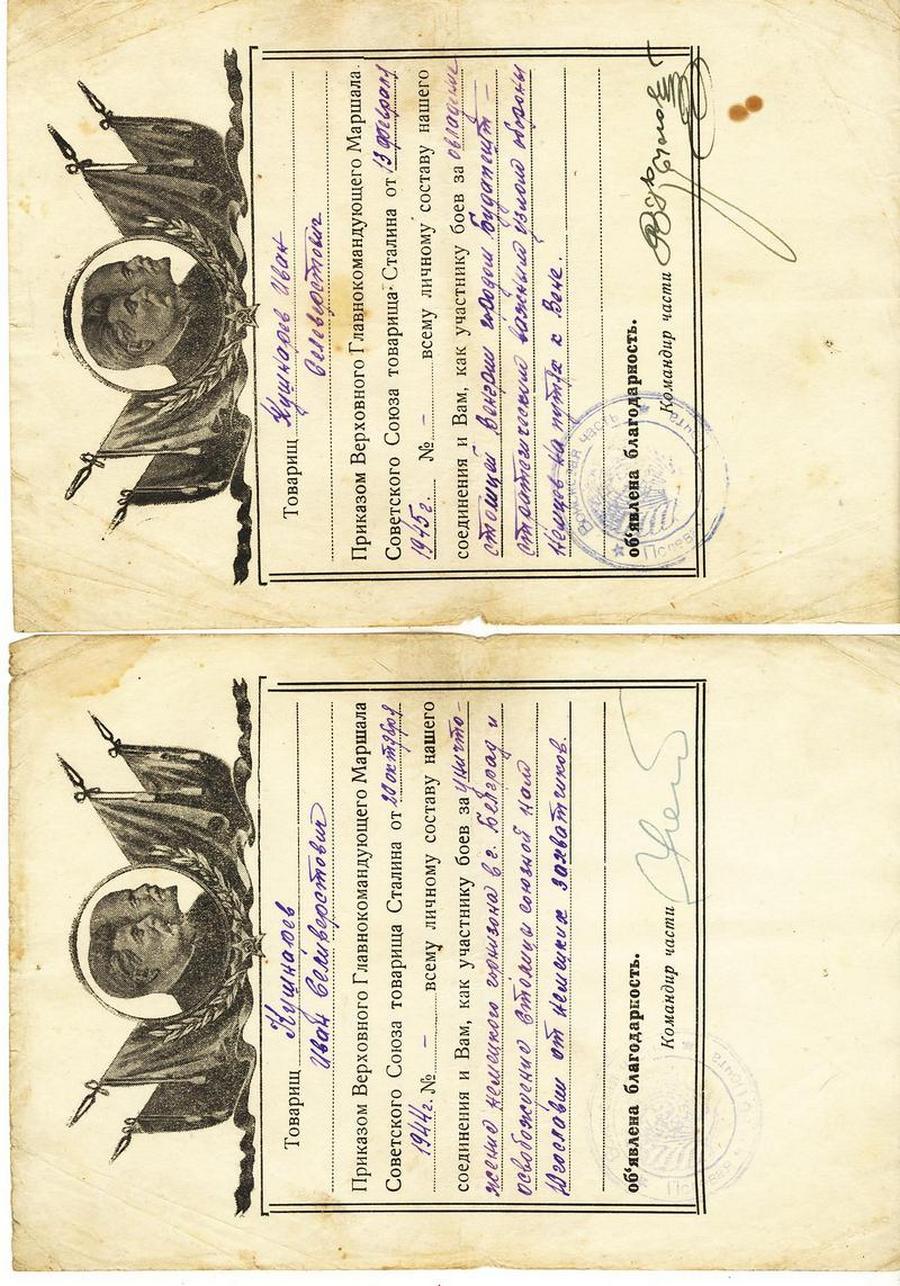 Товарищ Кушнарев Иван
Селеверстович
Приказом Верховного Главнокомандующего Маршала
Советского Союза товарища Сталина от 13 февраля
1945г. № – всему личному составу нашего
соединения и Вам, как участнику боев за овладение
столицей Венгрии городом Будапешт –
стратегический важный узлом обороны
немцев на путях к Вене.
об'явлена благодарность.
Командир части
Войсковая часть
Полевая почта
Товарищ Кушнарев
Иван Селиверстович
Приказом Верховного Главнокомандующего Маршала
Советского Союза товарища Сталина от 20 октября
1944г. № – всему личному составу нашего
соединения и Вам, как участнику боев за уничто-
жение немецкого гарнизона в г. Белград и
освобождение столицы союзной нам
Югославии от немецких захватчиков.
об'явлена благодарность.
Командир части